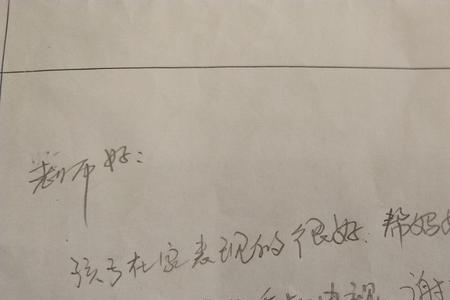 老师好：
孩子在家表现的很好.帮妈
电视 谢